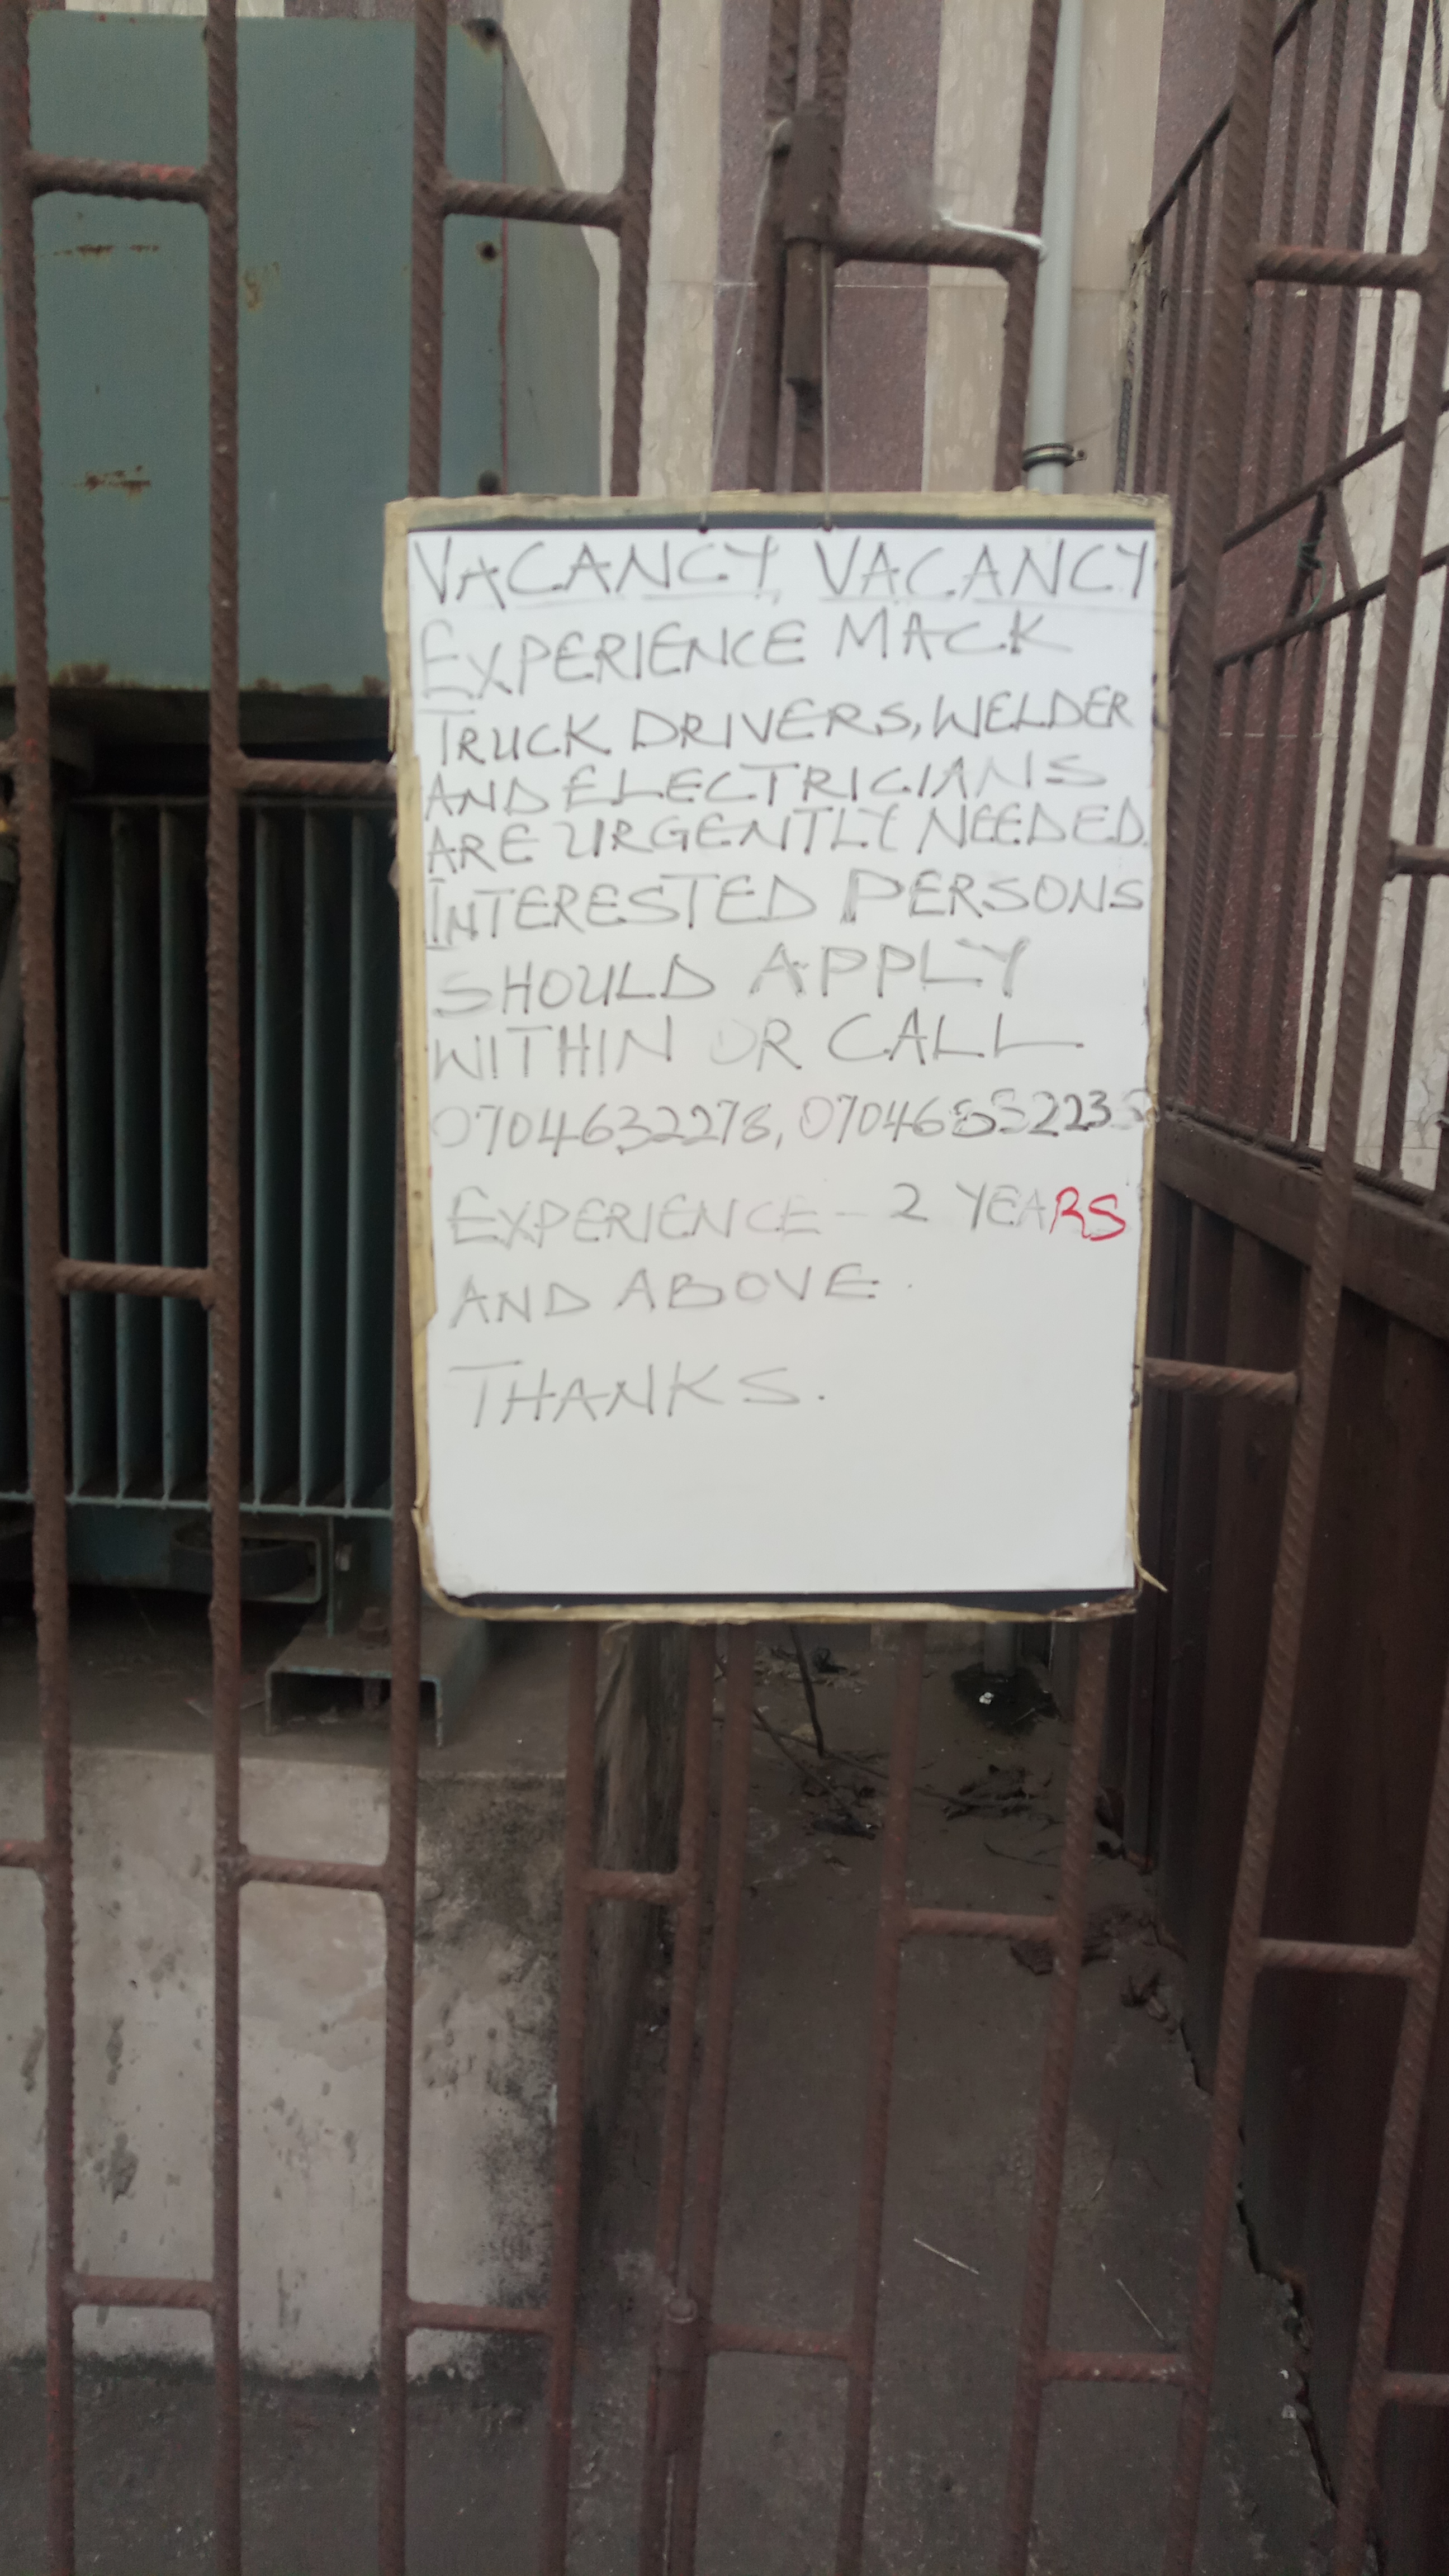 VACANCY, VACANCY
EXPERIENCE MACK
TRUCK DRIVERS, WELDER
AND ELECTRICIANS
ARE URGENTLY NEEDED.
INTERESTED PERSONS
SHOULD APPLY
WITHIN OR CALL
0704632278,
EXPERIENCE - 2 YEARS
AND ABOVE.
THANKS.